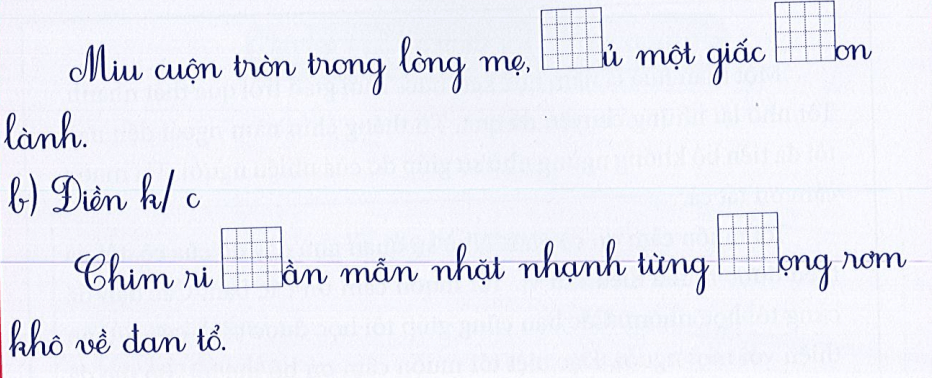 Miu cuộn tròn trong lòng mẹ, ủ một giấc on
lành.
b) Điền k/ c
Chim ri ần mẫn nhặt nhạnh từng ọng rơm
khô về đan tổ.